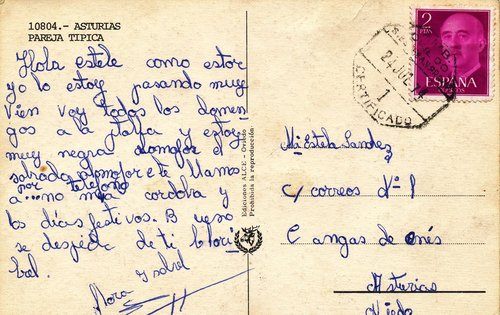 10804.- ASTURIAS
PAREJA TIPICA
Hola estele como estor
yo lo estoy pasando muy
vien voy todos los domen
gos a la playa y estoy
muy negra alomojor el
sabado alomojor te llamo
por telefono
a...no mia cordoba y
los dias festivos. B ueno
se despide de ti
bel.
flora Isabel
Ediciones ALCE - Oviedo
Prohibida la reproducción
2
PTAS
ESPAÑA
CORREOS
24 JUL
1
CERTIFICADO
Mª Estela Sandez
c/ correos Nº 1
Cangas de onés
Asturias